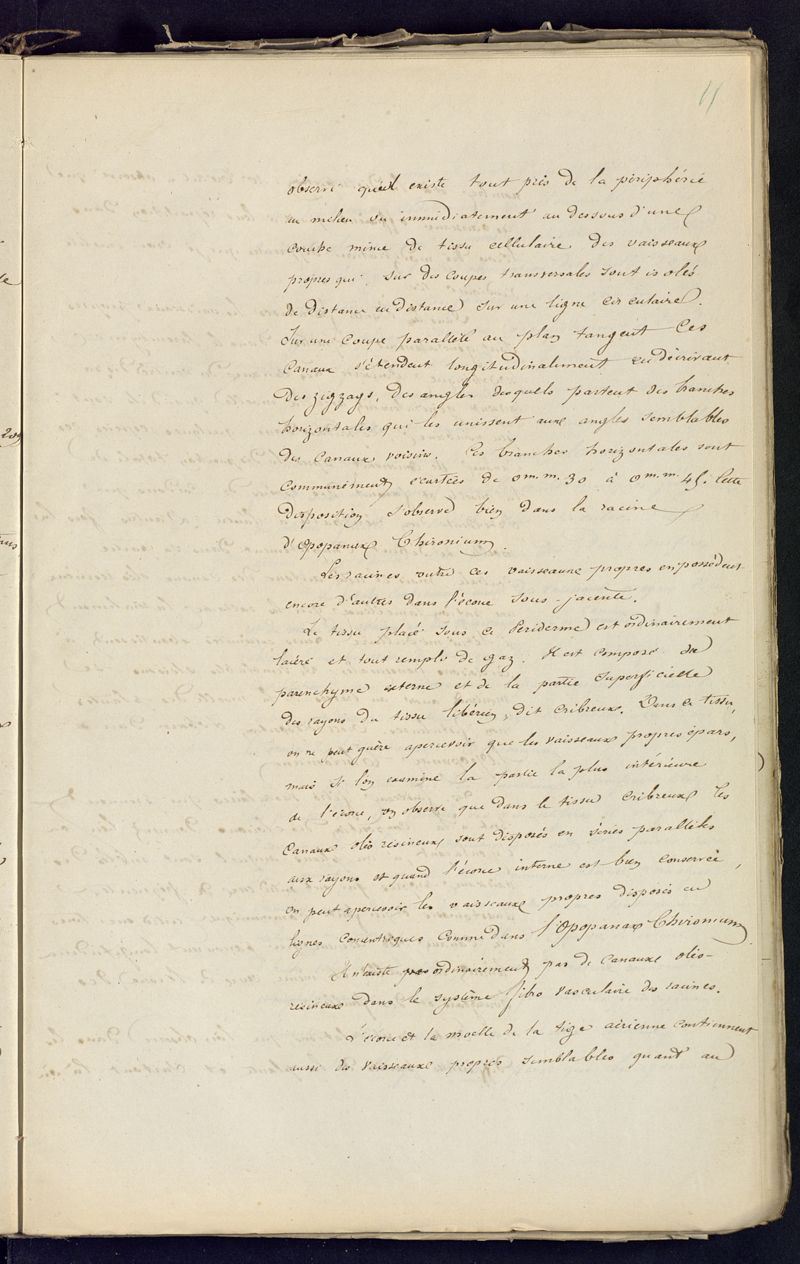 11
observé qu'il existe tout près de la périphérie
au milieu ou immédiatement au dessous d'une
couche mince de tissu cellulaire des vaisseaux
propres qui, sur des coupes transversales sont isolés
de distance en distance sur une ligne circulaire.
Sur une coupe parallèle au plan tangent ces
Canaux s'étendent longitudinalement en décrivant
des zigzags, des angles desquels partent des branches
horizontales qui les unissent aux angles semblables
des Canaux voisins. Ces branches horizontales sont
communément écartées de 0 m.m. 30 à 0 m.m. 45. Cette
disposition s'observe bien dans la racine
d'Opopanax Chironium.
Les racines outre ces vaisseaux propres en possèdent
encore d'autres dans l'écorce sous-jacente.
Le tissu placé sous ce Périderme est ordinairement
lacéré et tout rempli de gaz. Il est composé du
parenchyme externe et de la partie superficielle
des rayons du tissu libérien, dit cribreux. Dans ce tissu,
on ne peut guère apercevoir que les vaisseaux propres épars,
mais si l'on examine la partie la plus intérieure
de l'écorce, on observe que dans le tissu cribreux les
Canaux oléo résineux sont disposés en séries parallèles
aux rayons et quand l'écorce interne est bien conservée,
on peut apercevoir les vaisseaux propres disposés en
lignes concentriques comme dans l'Opopanax Chironium.
Il n'existe ordinairement pas de Canaux oléo-
résineux dans le système fibro vasculaire des racines.
L'écorce et la moelle de la tige aérienne contiennent
aussi des vaisseaux propres semblables quant au